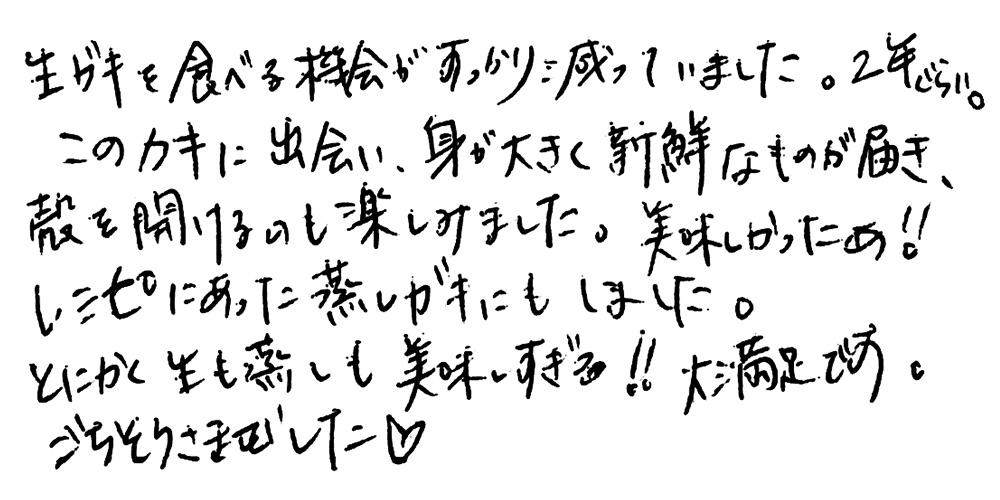 生ガキを食べる機会がすっかり減っていました。2年ぐらい。
このカキに出会い、身が大きく新鮮なものが届き、
殻を開けるのも楽しみました。美味しかったぁ!!
レシピにあった蒸しガキにもしました。
とにかく生も蒸しも美味しすぎる!!大満足です。
ごちそうさまでした♡